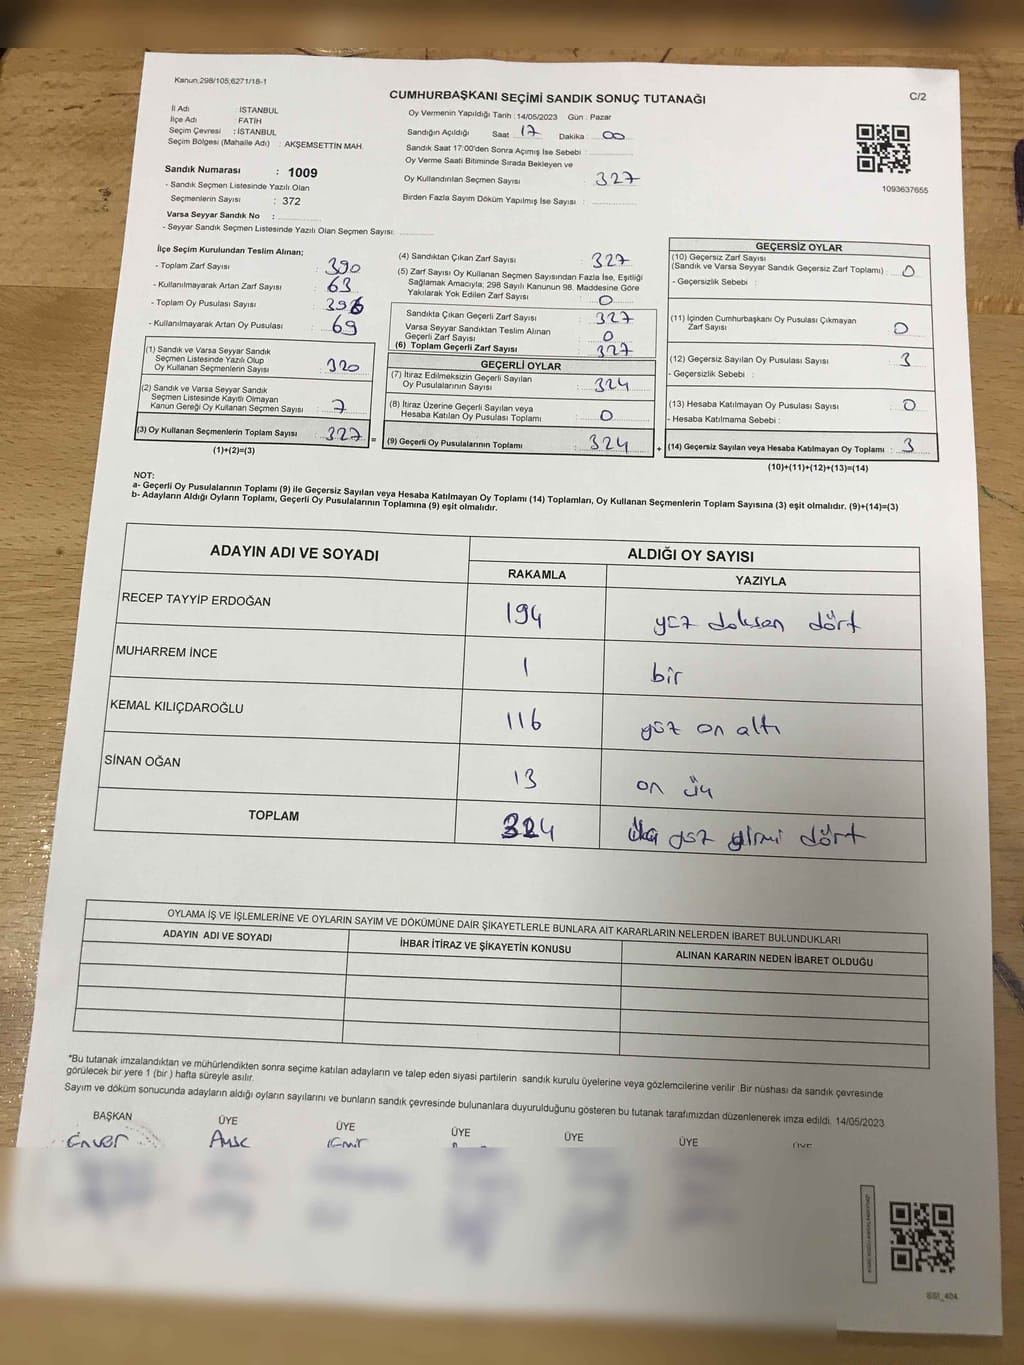 Kanun,298/105,6271/16-1
CUMHURBAŞKANI SEÇİMİ SANDIK SONUÇ TUTANAĞI
C/2
İl Adı : İSTANBUL
İlçe Adı : FATİH
Seçim Çevresi : İSTANBUL
Seçim Bölgesi (Mahalle Adı) : AKŞEMSETTİN MAH.
Sandık Numarası : 1009
- Sandık Seçmen Listesinde Yazılı Olan
Seçmenlerin Sayısı : 372
Varsa Seyyar Sandık No :
- Seyyar Sandık Seçmen Listesinde Yazılı Olan Seçmen Sayısı:
Oy Vermenin Yapıldığı Tarih : 14/05/2023 Gün : Pazar
Sandığın Açıldığı Saat 17 Dakika : 00
Sandık Saat 17:00'den Sonra Açımış İse Sebebi :
Oy Verme Saati Bitiminde Sırada Bekleyen ve
Oy Kullandırılan Seçmen Sayısı : 327
Birden Fazla Sayım Döküm Yapılmış İse Sayısı :
1093637655
İlçe Seçim Kurulundan Teslim Alınan;
- Toplam Zarf Sayısı : 390
- Kullanılmayarak Artan Zarf Sayısı : 63
- Toplam Oy Pusulası Sayısı : 396
- Kullanılmayarak Artan Oy Pusulası : 69
(1) Sandık ve Varsa Seyyar Sandık
Seçmen Listesinde Yazılı Olup
Oy Kullanan Seçmenlerin Sayısı : 320
(2) Sandık ve Varsa Seyyar Sandık
Seçmen Listesinde Kayıtlı Olmayan
Kanun Gereği Oy Kullanan Seçmen Sayısı : 7
(3) Oy Kullanan Seçmenlerin Toplam Sayısı : 327 =
(1)+(2)=(3)
(4) Sandıktan Çıkan Zarf Sayısı : 327
(5) Zarf Sayısı Oy Kullanan Seçmen Sayısından Fazla İse, Eşitliği
Sağlamak Amacıyla; 298 Sayılı Kanunun 98. Maddesine Göre
Yakılarak Yok Edilen Zarf Sayısı : 0
Sandıkta Çıkan Geçerli Zarf Sayısı : 327
Varsa Seyyar Sandıktan Teslim Alınan
Geçerli Zarf Sayısı : 0
(6) Toplam Geçerli Zarf Sayısı : 327
GEÇERLİ OYLAR
(7) İtiraz Edilmeksizin Geçerli Sayılan
Oy Pusulalarının Sayısı : 324
(8) İtiraz Üzerine Geçerli Sayılan veya
Hesaba Katılan Oy Pusulası Toplamı : 0
(9) Geçerli Oy Pusulalarının Toplamı : 324 +
GEÇERSİZ OYLAR
(10) Geçersiz Zarf Sayısı
(Sandık ve Varsa Seyyar Sandık Geçersiz Zarf Toplamı) : 0
- Geçersizlik Sebebi :
(11) İçinden Cumhurbaşkanı Oy Pusulası Çıkmayan
Zarf Sayısı : 0
(12) Geçersiz Sayılan Oy Pusulası Sayısı : 3
- Geçersizlik Sebebi :
(13) Hesaba Katılmayan Oy Pusulası Sayısı : 0
- Hesaba Katılmama Sebebi :
(14) Geçersiz Sayılan veya Hesaba Katılmayan Oy Toplamı : 3
(10)+(11)+(12)+(13)=(14)
NOT:
a- Geçerli Oy Pusulalarının Toplamı (9) ile Geçersiz Sayılan veya Hesaba Katılmayan Oy Toplamı (14) Toplamları, Oy Kullanan Seçmenlerin Toplam Sayısına (3) eşit olmalıdır. (9)+(14)=(3)
b- Adayların Aldığı Oyların Toplamı, Geçerli Oy Pusulalarının Toplamına (9) eşit olmalıdır.
ADAYIN ADI VE SOYADI ALDIĞI OY SAYISI
RAKAMLA YAZIYLA
RECEP TAYYİP ERDOĞAN 194 yüz doksan dört
MUHARREM İNCE 1 bir
KEMAL KILIÇDAROĞLU 116 yüz on altı
SİNAN OĞAN 13 on üç
TOPLAM 324 yüz yirmi dört
OYLAMA İŞ VE İŞLEMLERİNE VE OYLARIN SAYIM VE DÖKÜMÜNE DAİR ŞİKAYETLERLE BUNLARA AİT KARARLARIN NELERDEN İBARET BULUNDUKLARI
ADAYIN ADI VE SOYADI İHBAR İTİRAZ VE ŞİKAYETİN KONUSU ALINAN KARARIN NEDEN İBARET OLDUĞU
*Bu tutanak imzalandıktan ve mühürlendikten sonra seçime katılan adayların ve talep eden siyasi partilerin sandık kurulu üyelerine veya gözlemcilerine verilir .Bir nüshası da sandık çevresinde
görülecek bir yere 1 (bir ) hafta süreyle asılır.
Sayım ve döküm sonucunda adayların aldığı oyların sayılarını ve bunların sandık çevresinde bulunanlara duyurulduğunu gösteren bu tutanak tarafımızdan düzenlenerek imza edildi. 14/05/2023
BAŞKAN ÜYE ÜYE ÜYE ÜYE ÜYE ÜYE
Enver
SSI_404